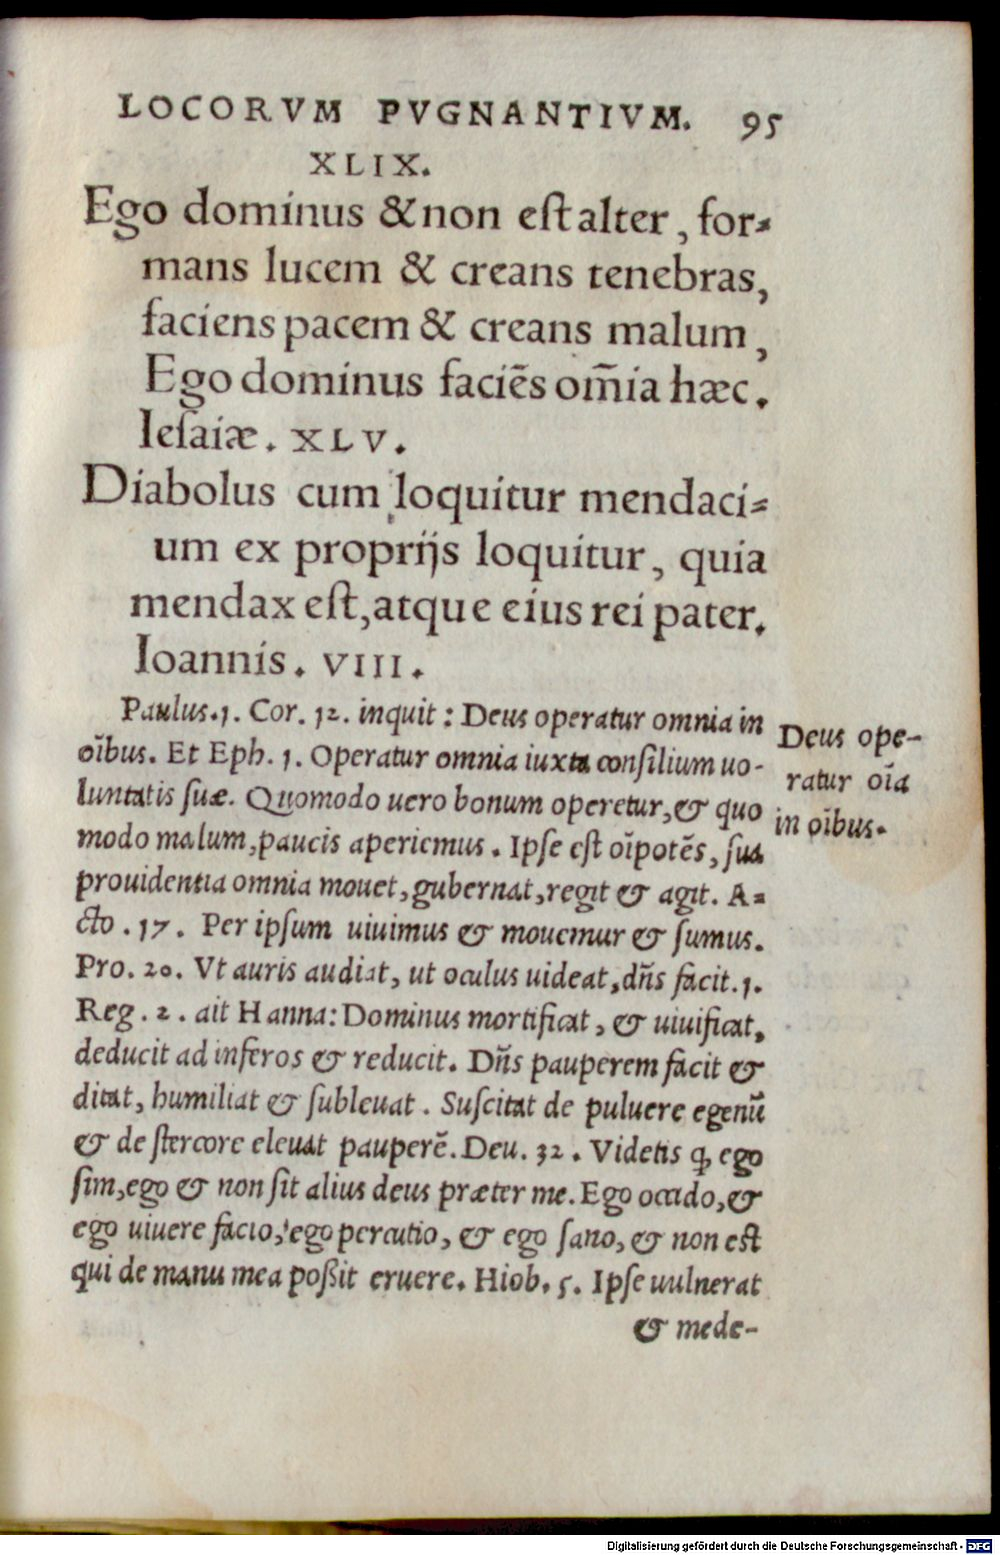 LOCORVM PVGNANTIVM. 95
XLIX.
Ego dominus & non eſt alter, for⸗
mans lucem & creans tenebras,
faciens pacem & creans malum,
Ego dominus faciẽs om̃ia hæc.
Ieſaiæ. XLV.
Diabolus cum loquitur mendaci⸗
um ex proprijs loquitur, quia
mendax eſt, atque eius rei pater.
Ioannis. VIII.
Paulus.1. Cor. 12. inquit: Deus operatur omnia in
oĩbus. Et Eph. 1. Operatur omnia iuxta conſilium uo-
luntatis ſuæ. Quomodo uero bonum operetur, & quo
modo malum, paucis aperiemus. Ipſe eſt oĩpotẽs, ſua
prouidentia omnia mouet, gubernat, regit & agit. A⸗
cto. 17. Per ipſum uiuimus & mouemur & ſumus.
Pro. 20. Vt auris audiat, ut oculus uideat, dñs facit. 1.
Reg. 2. ait Hanna: Dominus mortificat, & uiuificat,
deducit ad inferos & reducit. Dñs pauperem facit &
ditat, humiliat & ſubleuat. Suſcitat de puluere egenũ
& de ſtercore eleuat pauperẽ. Deu. 32. Videtis ꝙ ego
ſim, ego & non ſit alius deus præter me. Ego occido, &
ego uiuere facio, ego percutio, & ego ſano, & non eſt
qui de manu mea poßit eruere. Hiob. 5. Ipſe uulnerat
& mede-
Deus ope-
ratur oĩa
in oĩbus.
Digitalisierung gefördert durch die Deutsche Forschungsgemeinschaft - DFG